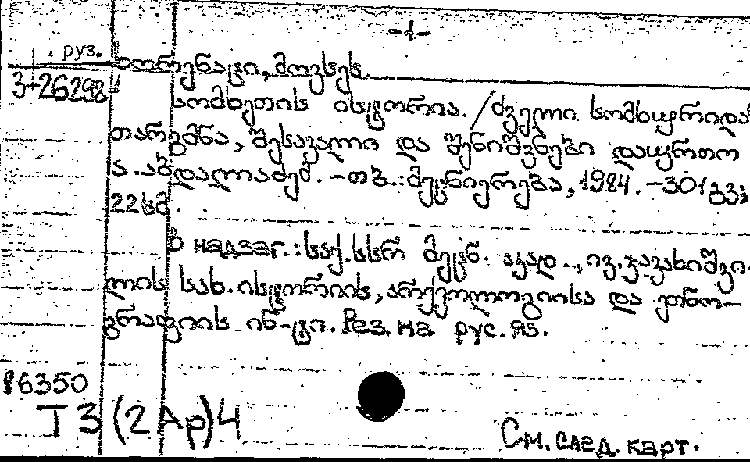 -1-
груз.
3-26298
ხორენაცი, მოვსეს.
სომხეთის ისტორია. / ძველი სომხურიდან
თარგმნა, შესავალი და შენიშვნები დაურთო
ა. აბდალაძემ. - თბ.: მეცნიერება, 1984. - 301 გვ;
22 სმ.
В надзаг.: საქ. სსრ მეცნ. აკად., ივ. ჯავახიშვი-
ლის სახ. ისტორიის, არქეოლოგიისა და ეთნო-
გრაფიის ინ-ტი. Рез. на рус. яз.
86350
Т3(2Ар)4
См. след. карт.